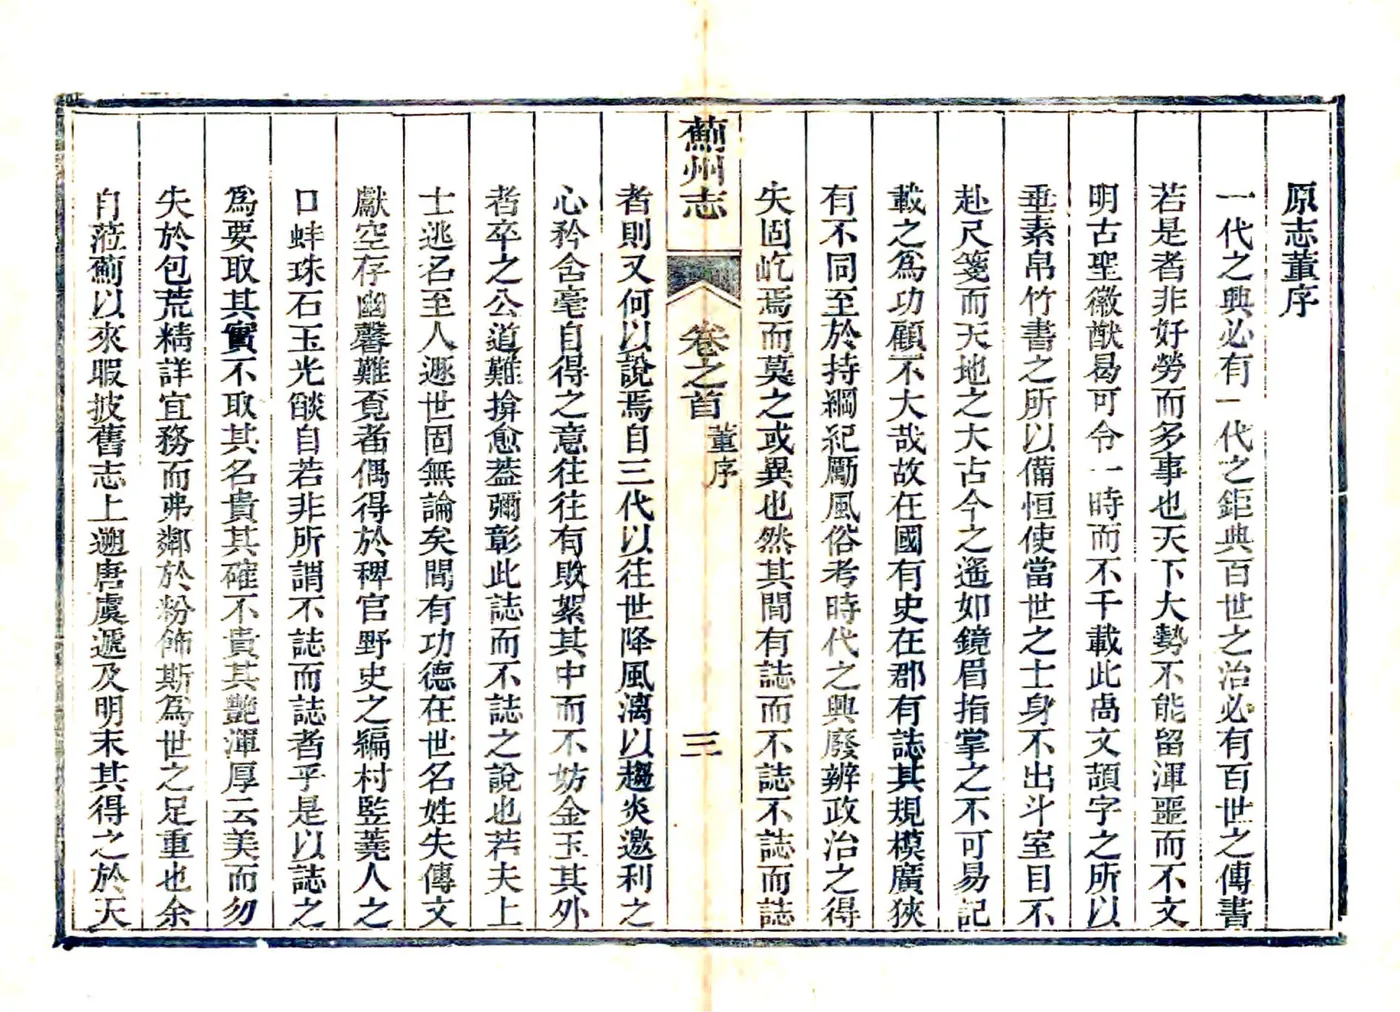 原志董序
一代之興必有一代之鉅典百世之治必有百世之傳書
若是者非好勞而多事也天下大勢不能留渾噩而不文
明古聖徽猷曷可令一時而不千載此卨文頡字之所以
垂素帛竹書之所以備恒使當世之士身不出斗室目不
赴尺箋而天地之大古今之遙如鏡眉指掌之不可易記
載之為功顧不大哉故在國有史在郡有誌其規模廣狹
有不同至於持綱紀勵風俗考時代之興廢辨政治之得
失固屹焉而莫之或異也然其間有誌而不誌不誌而誌
薊州志
卷之首
董序
三
者則又何以說焉自三代以往世降風漓以趨炎邀利之
心矜含毫自得之意往往有敗絮其中而不妨金玉其外
者卒之公道難揜愈葢彌彰此誌而不誌之說也若夫上
士逃名至人遯世固無論矣間有功德在世名姓失傳文
獻空存幽馨難覓者偶得於稗官野史之編村豎蕘人之
口蚌珠石玉光燄自若非所謂不誌而誌者乎是以誌之
為要取其實不取其名貴其確不貴其艷渾厚云美而勿
失於包荒精詳宜務而弗鄰於粉飾斯為世之足重也余
自蒞薊以來暇披舊志上遡唐虞遞及明末其得之於天